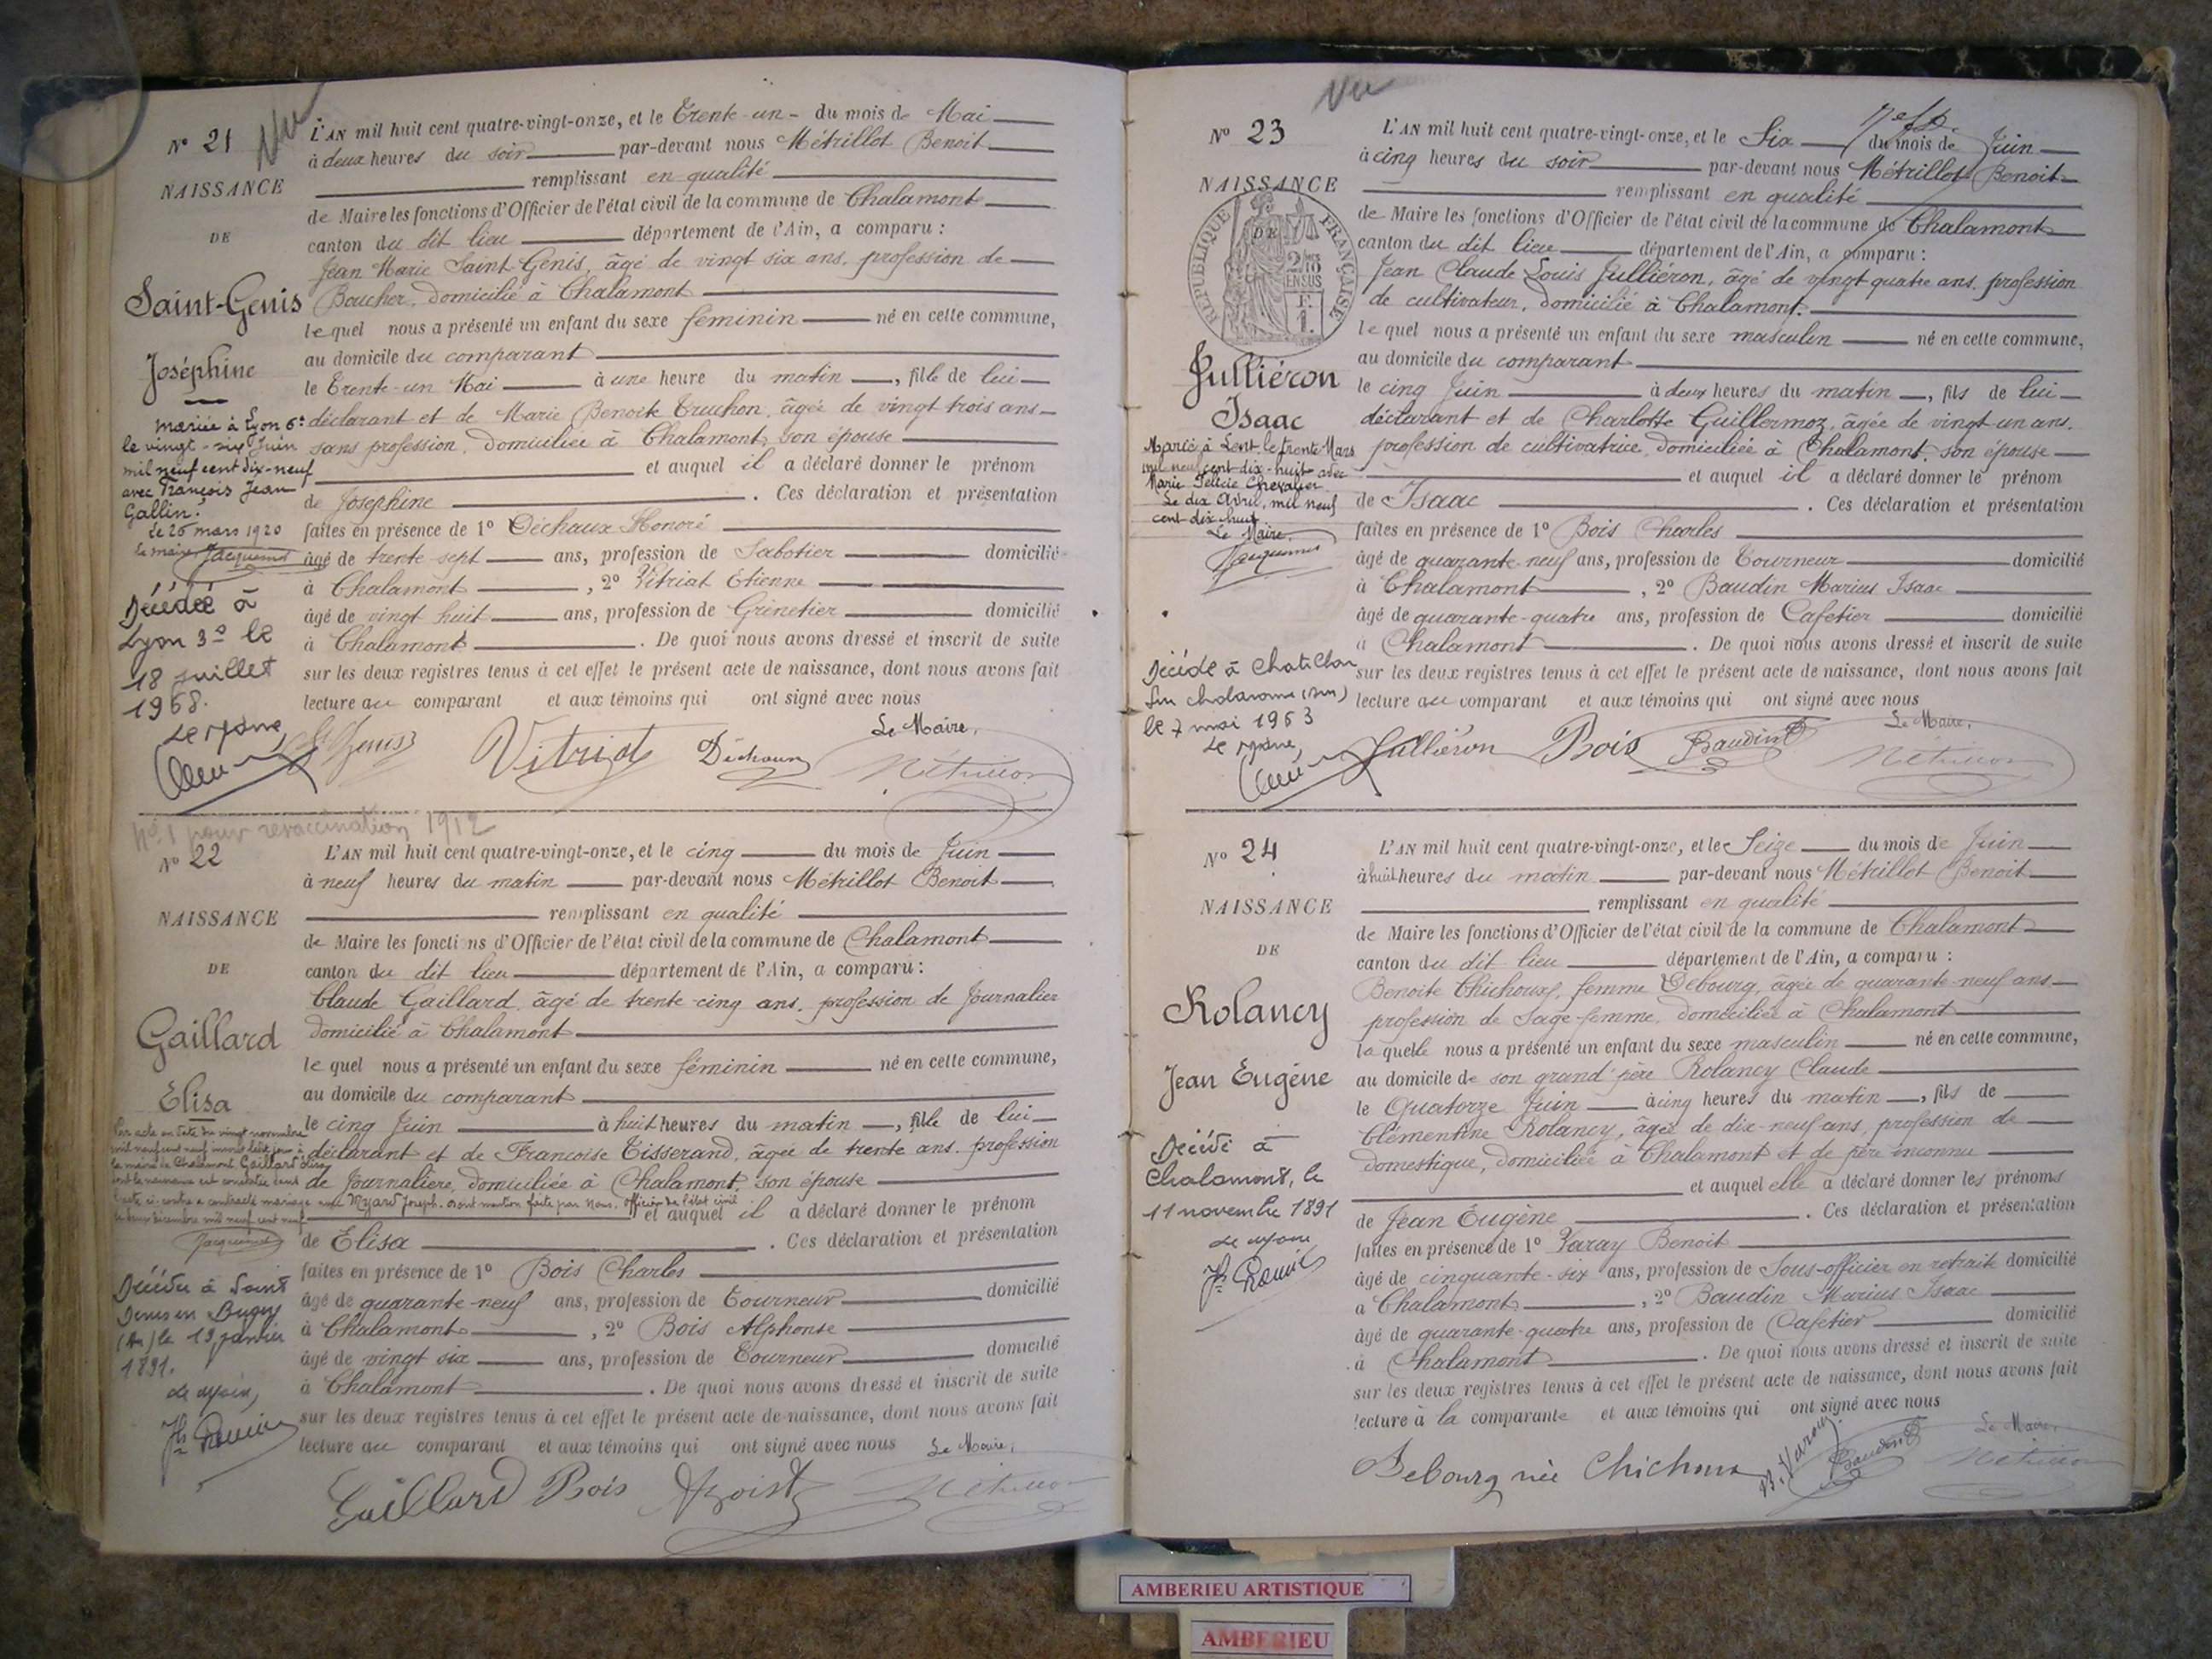 Vu
N° 21
NAISSANCE
DE
Saint-Genis
Joséphine
mariée à Lyon 6e
le vingt-six Juin
mil neuf cent dix-neuf
avec François Jean
Gallin.
Le 26 mars 1920
Le maire Jacquemot
Décédée à
Lyon 3e le
18 juillet
1968.
Le Maire,
L'AN mil huit cent quatre-vingt-onze, et le Trente-un du mois de Mai
à deux heures du soir par-devant nous Métrillot Benoit
remplissant en qualité
de Maire les fonctions d'Officier de l'état civil de la commune de Chalamont
canton du dit lieu département de l'Ain, a comparu :
Jean Marie Saint-Genis, âgé de vingt six ans, profession de
Boucher, domicilié à Chalamont
lequel nous a présenté un enfant du sexe féminin né en cette commune,
au domicile du comparant
le Trente-un Mai à une heure du matin, fille de lui
déclarant et de Marie Benoite Truchon, âgée de vingt trois ans
sans profession, domiciliée à Chalamont, son épouse
et auquel il a déclaré donner le prénom
de Joséphine. Ces déclaration et présentation
faites en présence de 1° Déchaux Honoré
âgé de trente sept ans, profession de Sabotier domicilié
à Chalamont, 2° Vitriat Etienne
âgé de vingt huit ans, profession de Grènetier domicilié
à Chalamont. De quoi nous avons dressé et inscrit de suite
sur les deux registres tenus à cet effet le présent acte de naissance, dont nous avons fait
lecture au comparant et aux témoins qui ont signé avec nous
Le Maire,
St Genis Vitriat Déchaux Métrillot
N° 1 pour revaccination 1912
N° 22
NAISSANCE
DE
Gaillard
Elisa
Par acte en date du vingt novembre
mil neuf cent neuf
la mairie de Chalamont Gaillard Elisa
dont la naissance est constatée dans
l'acte ci-contre a contracté mariage avec Myard Joseph. Dont mention faite par Nous, officier de l'état civil
le deux décembre mil neuf cent neuf
Jacquemot
Décédée à Saint
Denis en Bugey
(Ain) le 19 janvier
1891.
Le Maire,
L'AN mil huit cent quatre-vingt-onze, et le cinq du mois de Juin
à neuf heures du matin par-devant nous Métrillot Benoit
remplissant en qualité
de Maire les fonctions d'Officier de l'état civil de la commune de Chalamont
canton du dit lieu département de l'Ain, a comparu :
Claude Gaillard, âgé de trente-cinq ans, profession de Journalier
domicilié à Chalamont
lequel nous a présenté un enfant du sexe féminin né en cette commune,
au domicile du comparant
le cinq Juin à huit heures du matin, fille de lui
déclarant et de Francoise Tisserand, âgée de trente ans, profession
de Journalière, domiciliée à Chalamont, son épouse
et auquel il a déclaré donner le prénom
de Elisa. Ces déclaration et présentation
faites en présence de 1° Bois Charles
âgé de quarante-neuf ans, profession de Tourneur domicilié
à Chalamont, 2° Bois Alphonse
âgé de vingt six ans, profession de Tourneur domicilié
à Chalamont. De quoi nous avons dressé et inscrit de suite
sur les deux registres tenus à cet effet le présent acte de naissance, dont nous avons fait
lecture au comparant et aux témoins qui ont signé avec nous Le Maire,
Gaillard Bois A Bois Métrillot
Vu
N° 23
NAISSANCE
DE
RÉPUBLIQUE FRANÇAISE
Julliéron
Isaac
Marié à Lent le trente Mars
mil neuf cent dix-huit avec
Marie Félicie Chevalier
Le dix Avril, mil neuf
cent dix huit
Le Maire,
Jacquemot
Décédé à Chatillon
sur Chalaronne (Ain)
le 7 mai 1963
Le Maire,
L'AN mil huit cent quatre-vingt-onze, et le Six du mois de Juin
à cinq heures du soir par-devant nous Métrillot Benoit
remplissant en qualité
de Maire les fonctions d'Officier de l'état civil de la commune de Chalamont
canton du dit lieu département de l'Ain, a comparu :
Jean Claude Louis Julliéron, âgé de vingt quatre ans, profession
de cultivateur, domicilié à Chalamont.
lequel nous a présenté un enfant du sexe masculin né en cette commune,
au domicile du comparant
le cinq Juin à deux heures du matin, fils de lui
déclarant et de Charlotte Guillermoz, âgée de vingt-un ans,
profession de cultivatrice, domiciliée à Chalamont, son épouse
et auquel il a déclaré donner le prénom
de Isaac. Ces déclaration et présentation
faites en présence de 1° Bois Charles
âgé de quarante-neuf ans, profession de Tourneur domicilié
à Chalamont, 2° Baudin Marius Isaac
âgé de quarante-quatre ans, profession de Cafetier domicilié
à Chalamont. De quoi nous avons dressé et inscrit de suite
sur les deux registres tenus à cet effet le présent acte de naissance, dont nous avons fait
lecture au comparant et aux témoins qui ont signé avec nous
Le Maire,
Julliéron Bois Baudin Métrillot
N° 24
NAISSANCE
DE
Rolancy
Jean Eugène
Décédé à
Chalamont, le
11 novembre 1891
Le Maire
L'AN mil huit cent quatre-vingt-onze, et le Seize du mois de Juin
à huit heures du matin par-devant nous Métrillot Benoit
remplissant en qualité
de Maire les fonctions d'Officier de l'état civil de la commune de Chalamont
canton du dit lieu département de l'Ain, a comparu :
Benoite Chichoux, femme Debourg, âgée de quarante-neuf ans
profession de Sage-femme, domiciliée à Chalamont
laquelle nous a présenté un enfant du sexe masculin né en cette commune,
au domicile de son grand'père Rolancy Claude
le Quatorze Juin à cinq heures du matin, fils de
Clémentine Rolancy, âgée de dix-neuf ans, profession de
domestique, domiciliée à Chalamont et de père inconnu
et auquel elle a déclaré donner les prénoms
de Jean Eugène. Ces déclaration et présentation
faites en présence de 1° Varay Benoit
âgé de cinquante-six ans, profession de Sous-officier en retraite domicilié
à Chalamont, 2° Baudin Marius Isaac
âgé de quarante-quatre ans, profession de Cafetier domicilié
à Chalamont. De quoi nous avons dressé et inscrit de suite
sur les deux registres tenus à cet effet le présent acte de naissance, dont nous avons fait
lecture à la comparante et aux témoins qui ont signé avec nous
Le Maire,
Debourg née Chichoux B. Varay Baudin Métrillot
AMBERIEU ARTISTIQUE
AMBERIEU